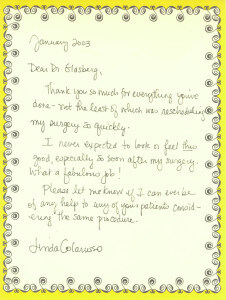 January 2003
Dear Dr. Glasberg,
Thank you so much for everything you've
done - not the least of which was rescheduling
my surgery so quickly.
I never expected to look or feel this
good, especially so soon after my surgery.
What a fabulous job!
Please let me know if I can ever be
of any help to any of your patients consid-
ering the same procedure.
Linda Colarusso